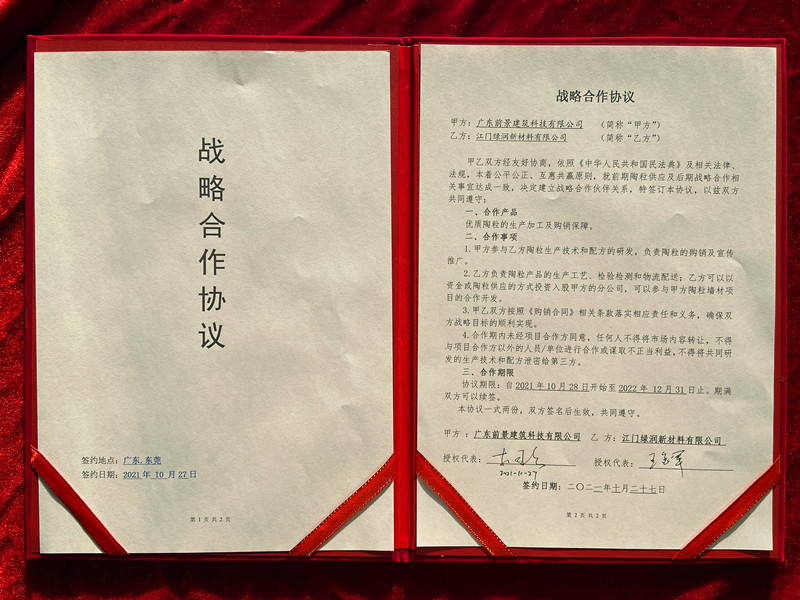 战略合作协议
签约地点：广东.东莞
签约日期：2021年 10月 27日
第 1 页 共 2 页
战略合作协议
甲方：广东前景建筑科技有限公司 （简称“甲方”）
乙方：江门绿润新材料有限公司 （简称“乙方”）
甲乙双方经友好协商，依照《中华人民共和国民法典》及相关法律、
法规，本着公平公正、互惠共赢原则，就前期陶粒供应及后期战略合作相
关事宜达成一致，决定建立战略合作伙伴关系，特签订本协议，以兹双方
共同遵守：
一、合作产品
优质陶粒的生产加工及购销保障。
二、合作事项
1.甲方参与乙方陶粒生产技术和配方的研发，负责陶粒的购销及宣传
推广。
2.乙方负责陶粒产品的生产工艺、检验检测和物流配送；乙方可以以
资金或陶粒供应的方式投资入股甲方的分公司，可以参与甲方陶粒墙材项
目的合作开发。
3.甲乙双方按照《购销合同》相关条款落实相应责任和义务，确保双
方战略目标的顺利实现。
4.合作期内未经项目合作方同意，任何人不得将市场内容转让，不得
与项目合作方以外的人员/单位进行合作或谋取不正当利益，不得将共同研
发的生产技术和配方泄密给第三方。
三、合作期限
协议期限：自2021年10月28日开始至2022年 12月31日止。期满
双方可以续签。
本协议一式两份，双方签名后生效，共同遵守。
甲方：广东前景建筑科技有限公司 乙方：江门绿润新材料有限公司
授权代表： 授权代表：
2021-10-27
签约日期：二〇二一年十月二十七日
第 2 页 共 2 页